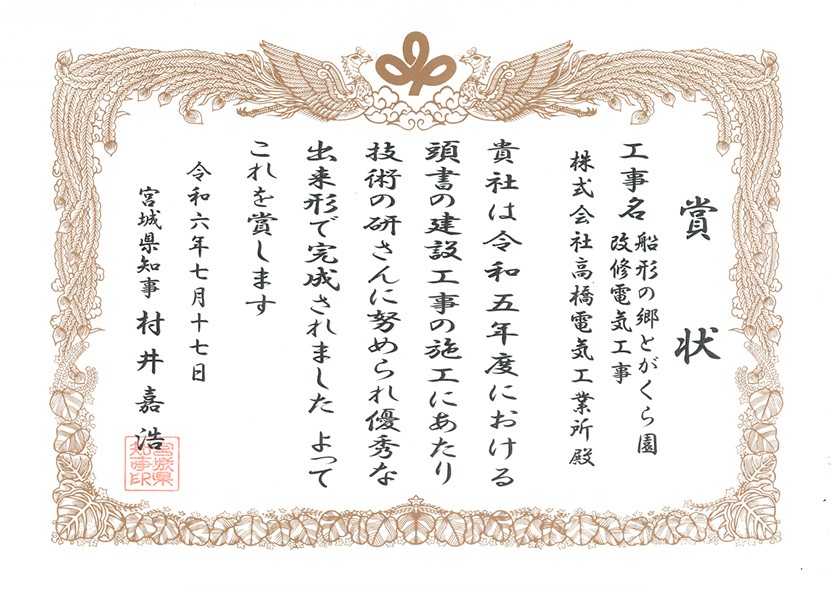 賞状
工事名 船形の郷とがくら園
改修電気工事
株式会社高橋電気工業所殿
貴社は令和五年度における
頭書の建設工事の施工にあたり
技術の研さんに努められ優秀な
出来形で完成されました よって
これを賞します
令和六年七月十七日
宮城県知事 村井嘉浩
宮城県
知事印